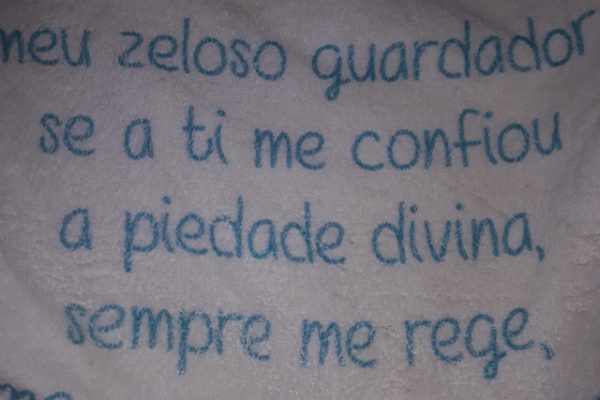 meu zeloso guardador
se a ti me confiou
a piedade divina,
sempre me rege,